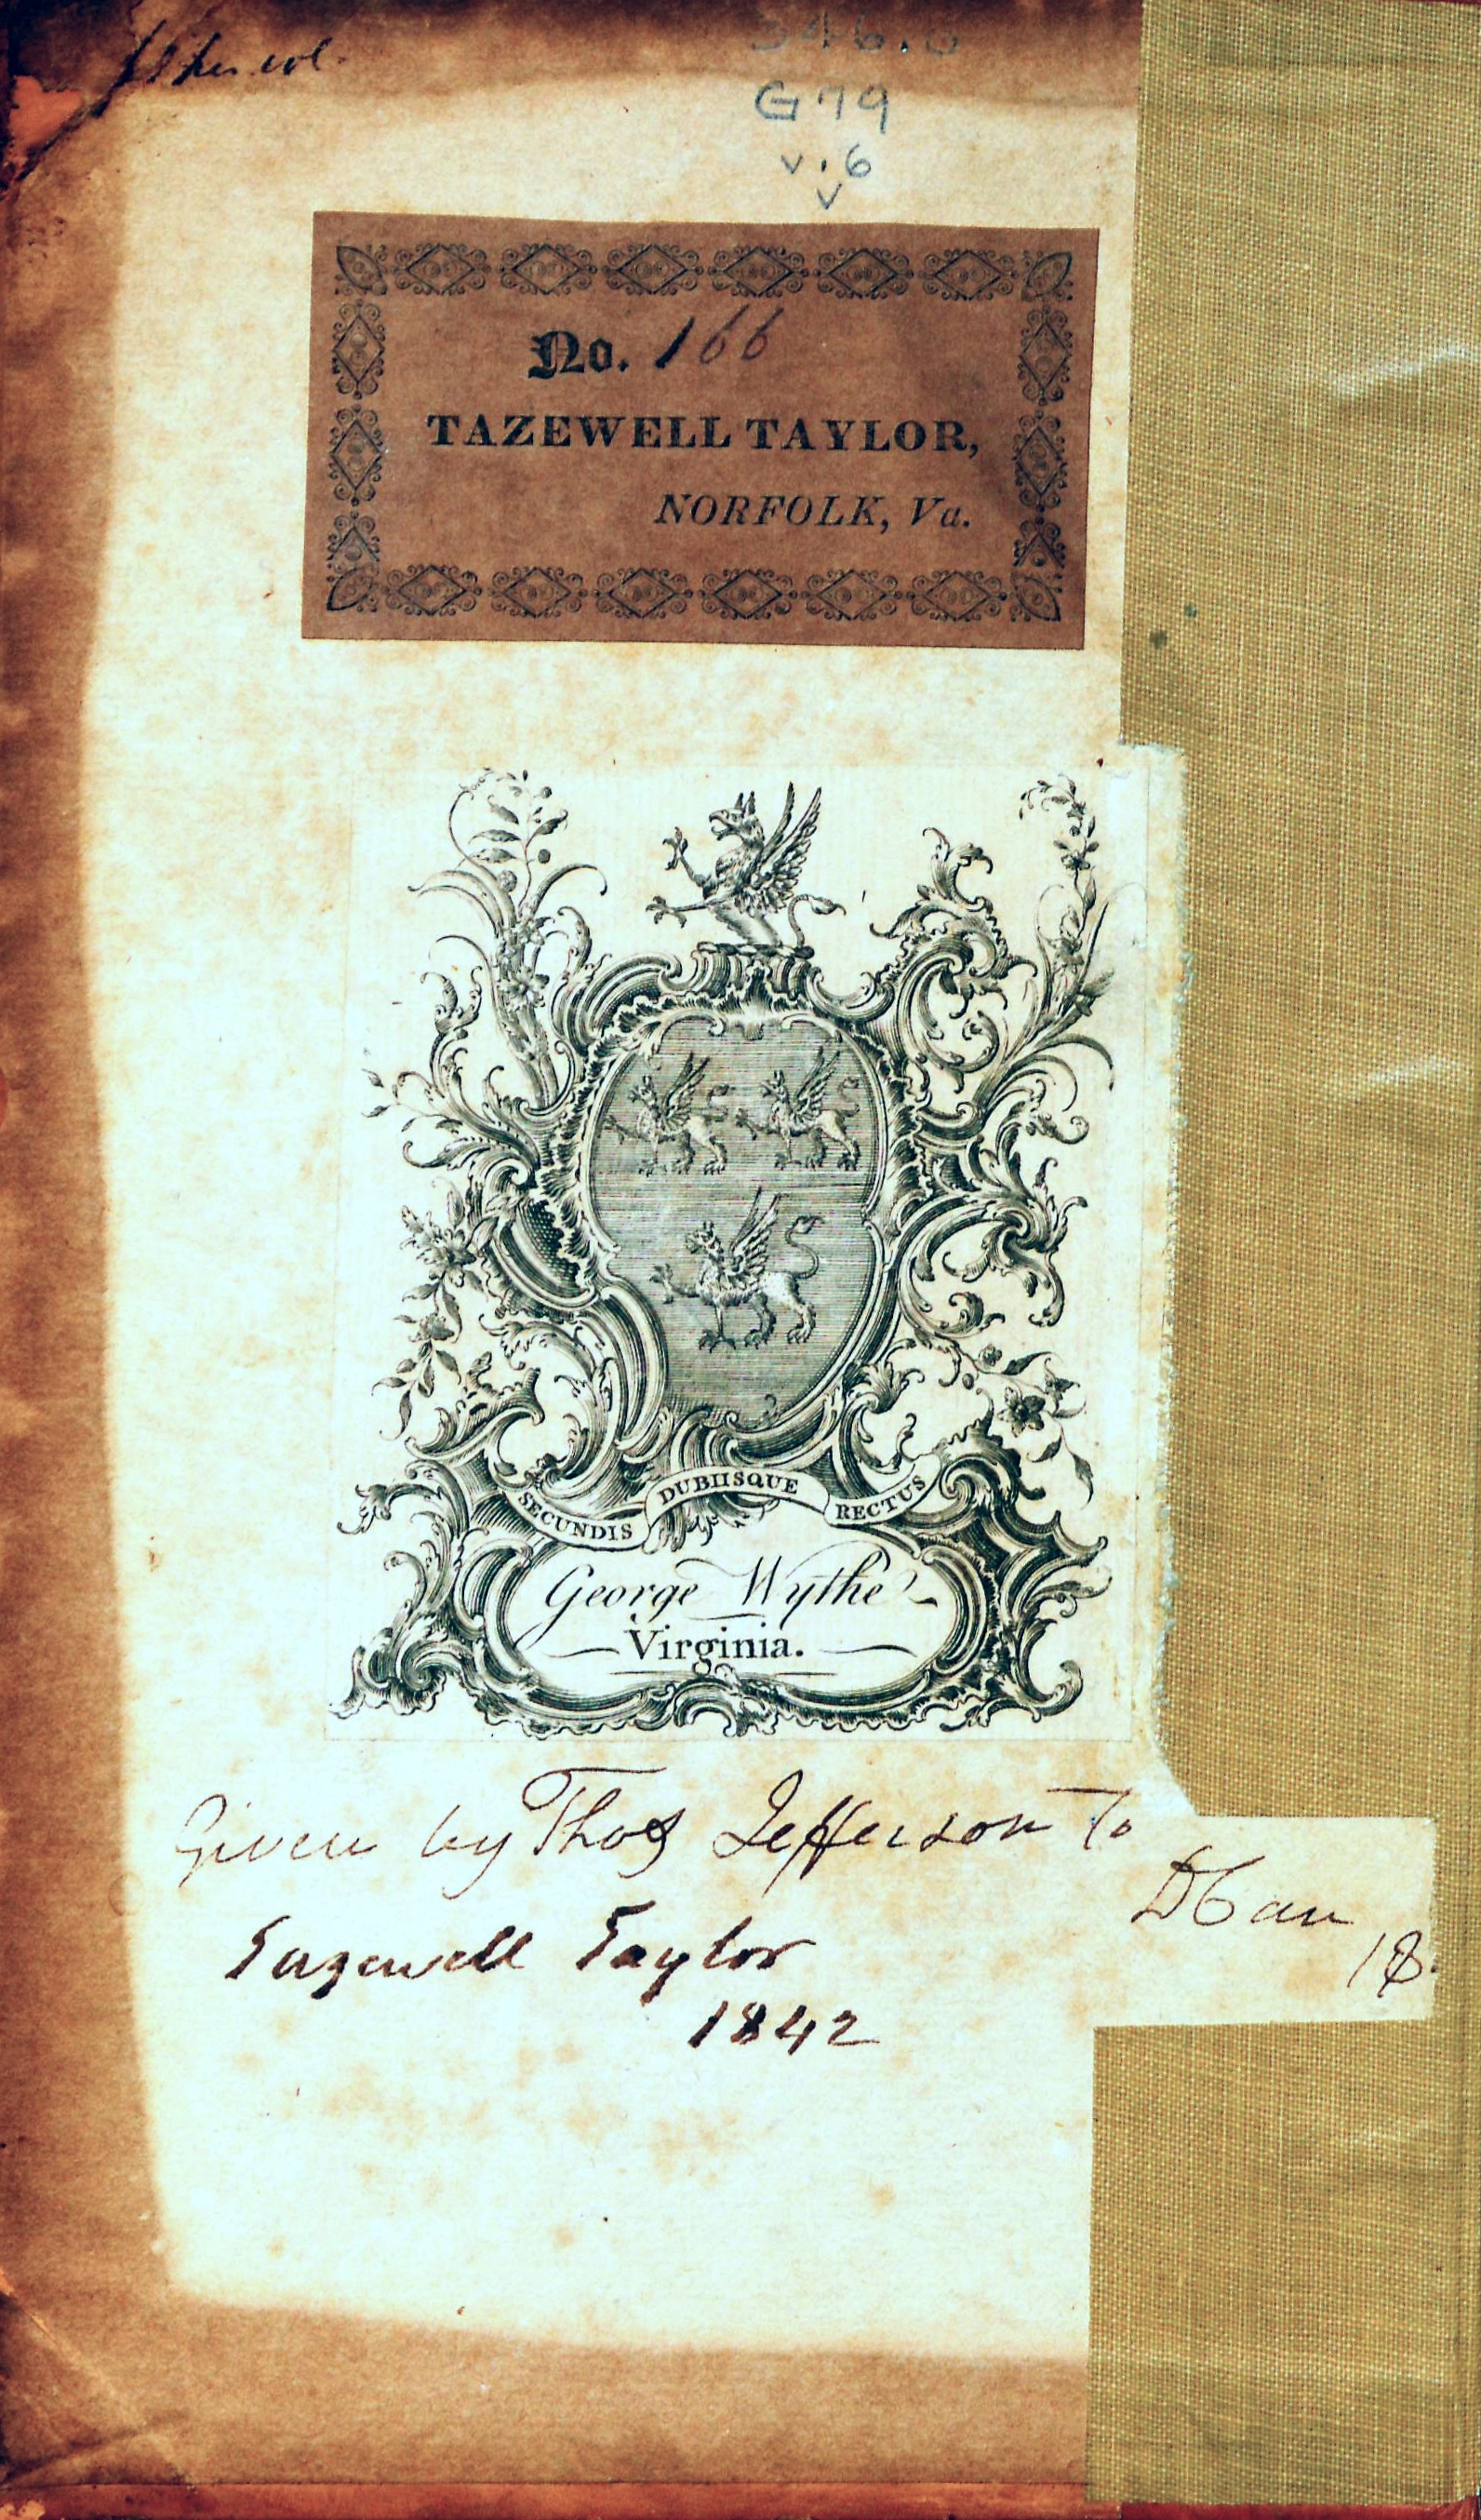 346.0
G79
v.6
v
No. 166
TAZEWELL TAYLOR,
NORFOLK, Va.
SECUNDIS DUBIISQUE RECTUS
George Wythe
Virginia.
Given by Thos Jefferson To
D Carr
18
Tazewell Taylor
1842